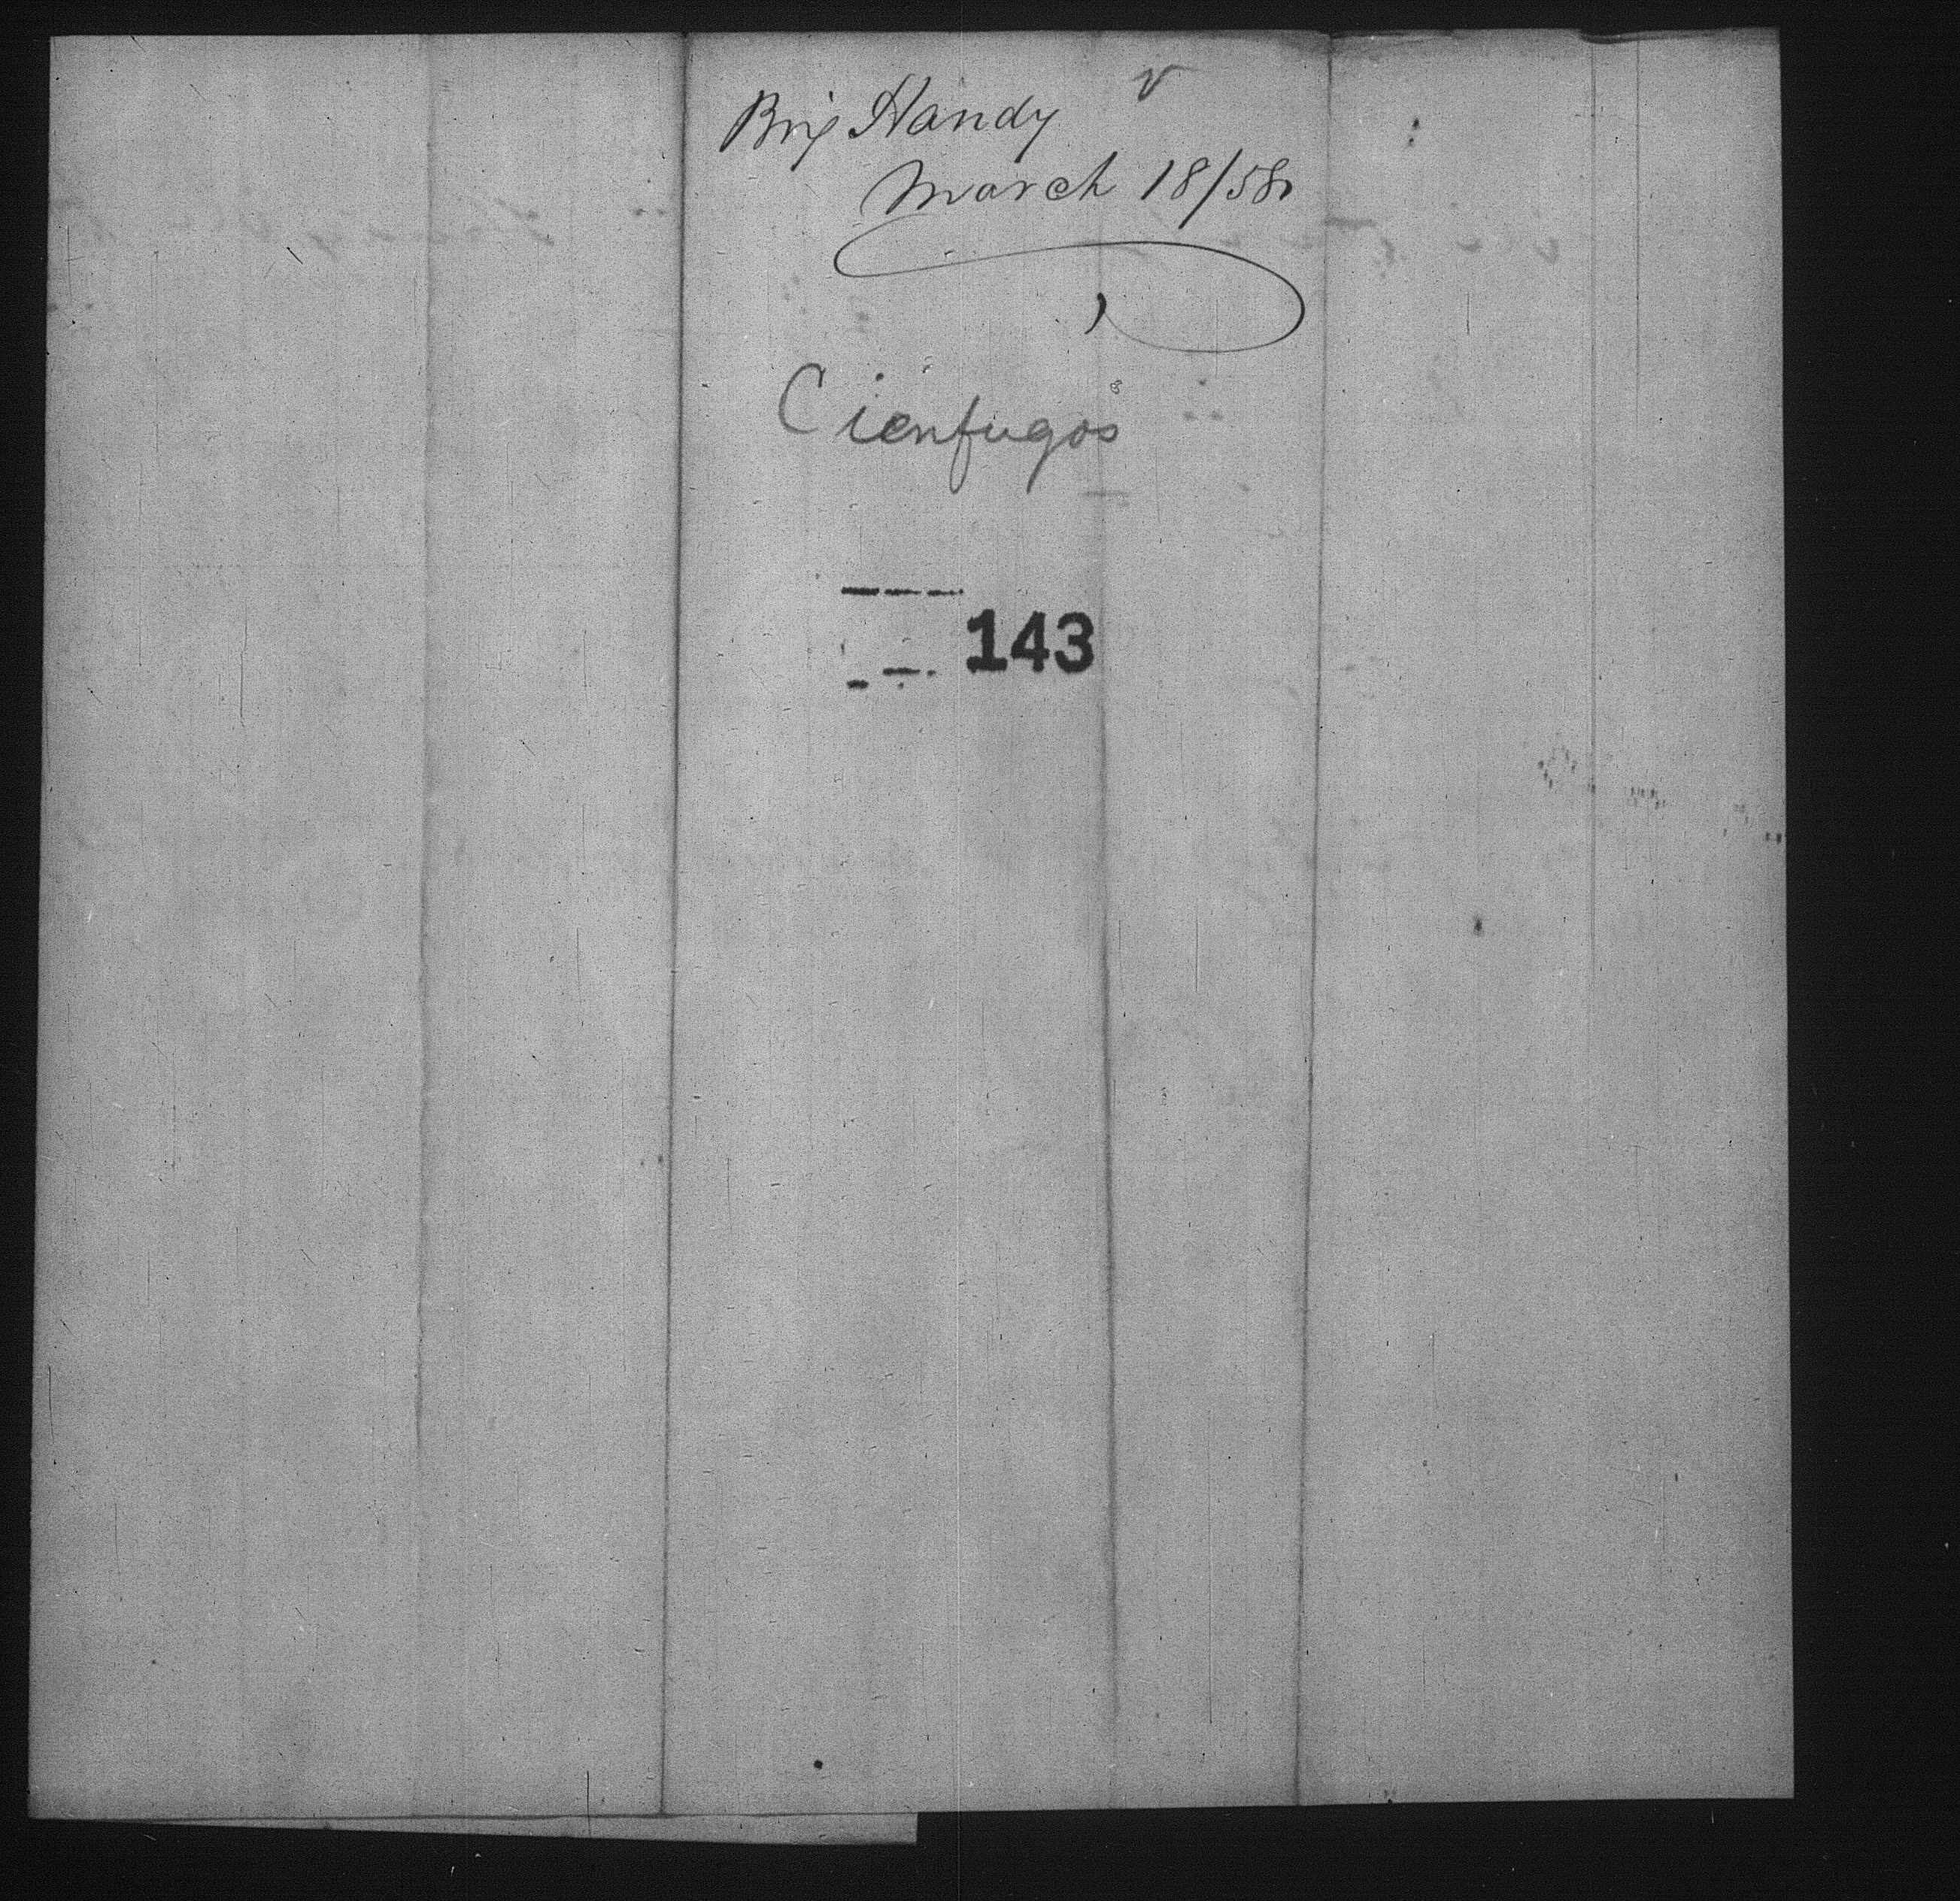 Brig Handy
March 18/58
Cienfugos
143